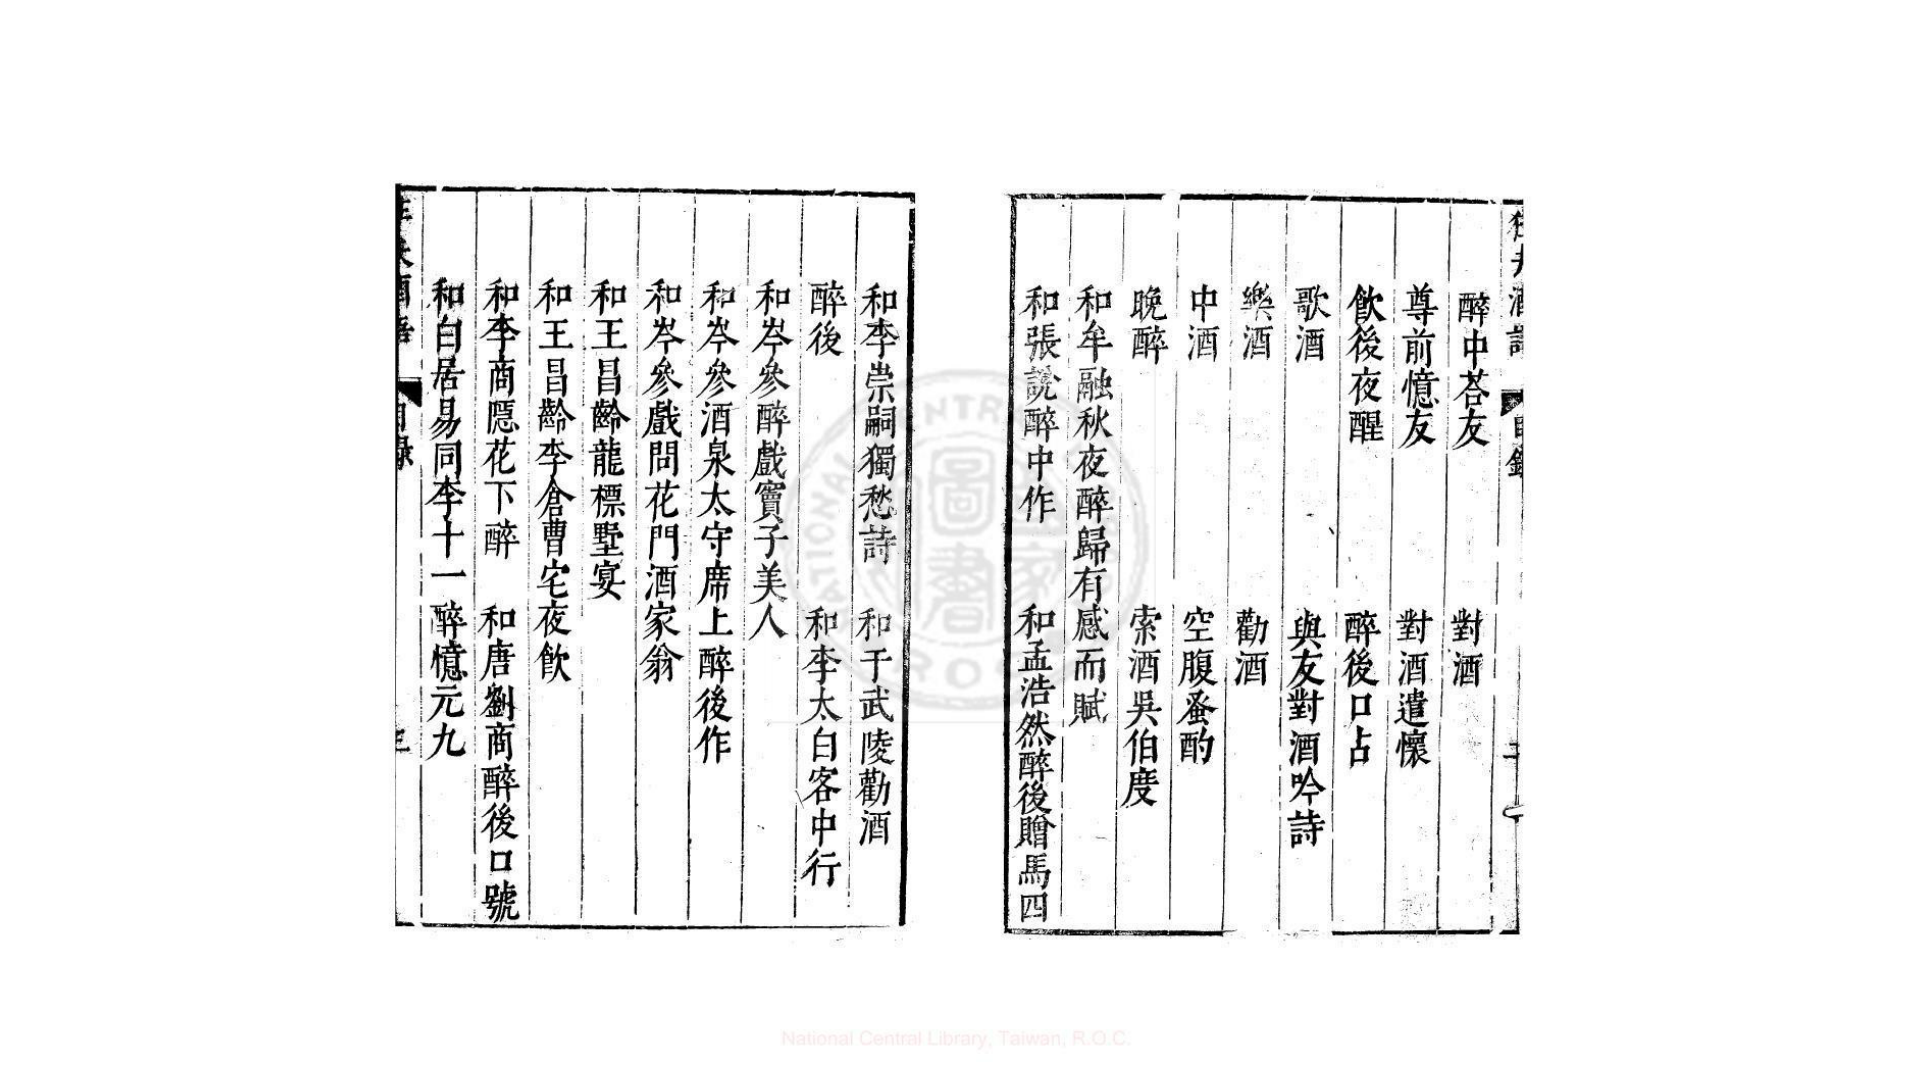 醉中荅友 對酒
尊前憶友 對酒遣懷
飲後夜醒 醉後口占
歌酒 與友對酒吟詩
樂酒 勸酒
中酒 空腹蚤酌
晚醉 索酒吳伯度
和牟融秋夜醉歸有感而賦
和張說醉中作 和孟浩然醉後贈馬四
和李崇嗣獨愁詩 和于武陵勸酒
醉後 和李太白客中行
和岑參醉戲竇子美人
和岑參酒泉太守席上醉後作
和岑參戲問花門酒家翁
和王昌齡龍標墅宴
和王昌齡李倉曹宅夜飲
和李商隱花下醉 和唐劉商醉後口號
和白居易同李十一醉憶元九
目錄
National Central Library, Taiwan, R.O.C.